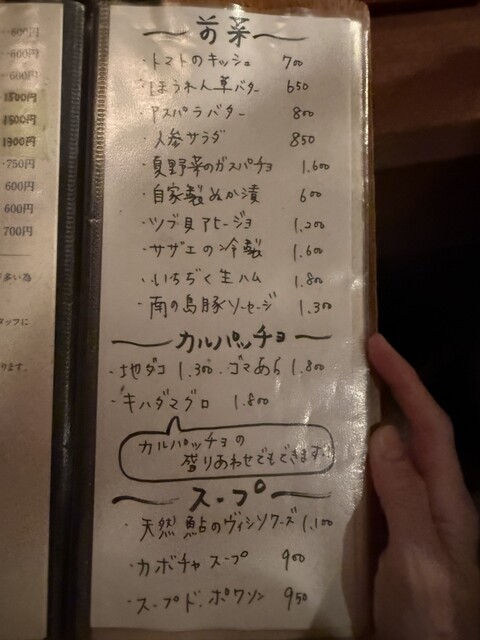 600円
600円
600円
1500円
1800円
1300円
750円
600円
600円
700円
多い為
タッフに
ります。
～前菜～
・トマトのキッシュ 700
・ほうれん草バター 650
・アスパラバター 800
・人参サラダ 850
・夏野菜のガスパチョ 1.600
・自家製ぬか漬 600
・ツブ貝アヒージョ 1.200
・サザエの冷製 1.600
・いちぢく生ハム 1.800
・南の島豚ソーセージ 1.300
～カルパッチョ～
・地ダコ 1.300 ・ゴマあら 1.800
・キハダマグロ 1.800
カルパッチョの
盛りあわせでもできます!!
～スープ～
・天然鮎のヴィシソワーズ 1,100
・カボチャスープ 900
・スープド.ポワソン 950